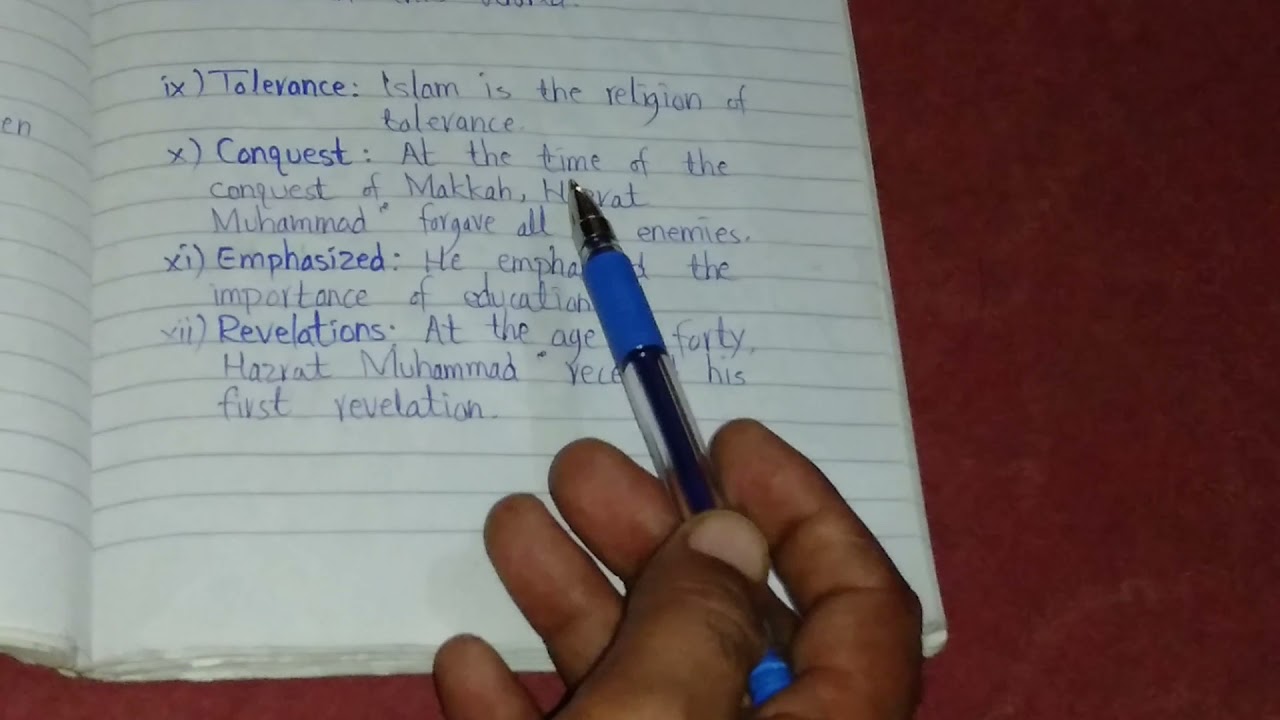 en
ix) Tolerance: Islam is the religion of
tolerance.
x) Conquest: At the time of the
conquest of Makkah,
Muhammad forgave all enemies.
xi) Emphasized: He the
importance of education
xii) Revelations: At the age forty,
Hazrat Muhammad his
first revelation.